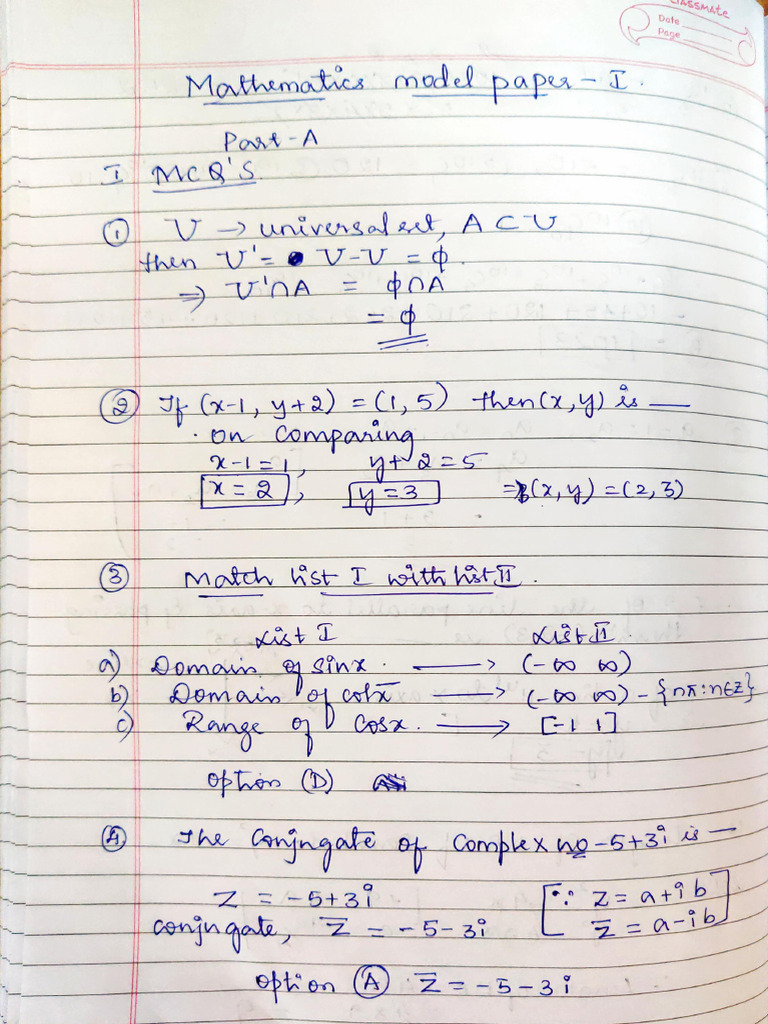 classmate
Date
Page
Mathematics model paper - I.
Part-A
I MCQ'S
① U → universal set, A ⊂ U
then U' = U-U = ϕ.
⇒ U'∩A = ϕ∩A
= ϕ
② If (x-1, y+2) = (1, 5) then (x,y) is —
on comparing
x-1=1, y+2=5
x=2, y=3 ⇒ (x,y)=(2,3)
③ Match list I with list II.
List I List II
a) Domain of sinx. → (-∞ ∞)
b) Domain of cotx → (-∞ ∞) - {nπ: n∈Z}
c) Range of cosx. → [-1 1]
option (D)
④ The conjugate of complex no -5+3i is —
Z = -5+3i [∵ Z = a+ib
conjugate, Z̅ = -5-3i Z̅ = a-ib]
option Ⓐ Z̅ = -5-3i